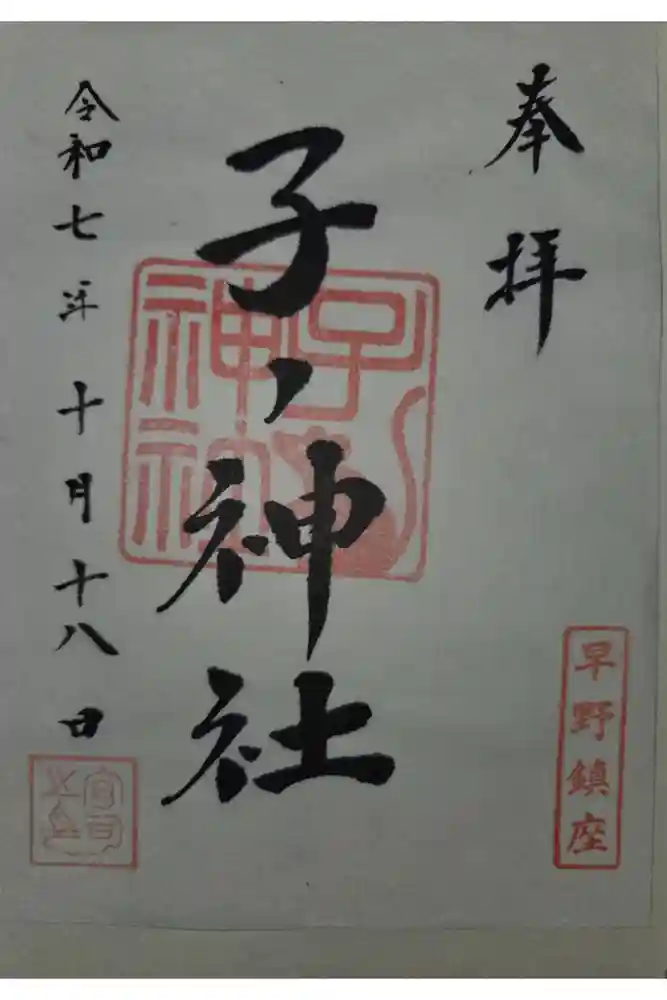 奉拝
早野鎮座
子ノ神社
子神社
令和七年十月十八日
宮司之印